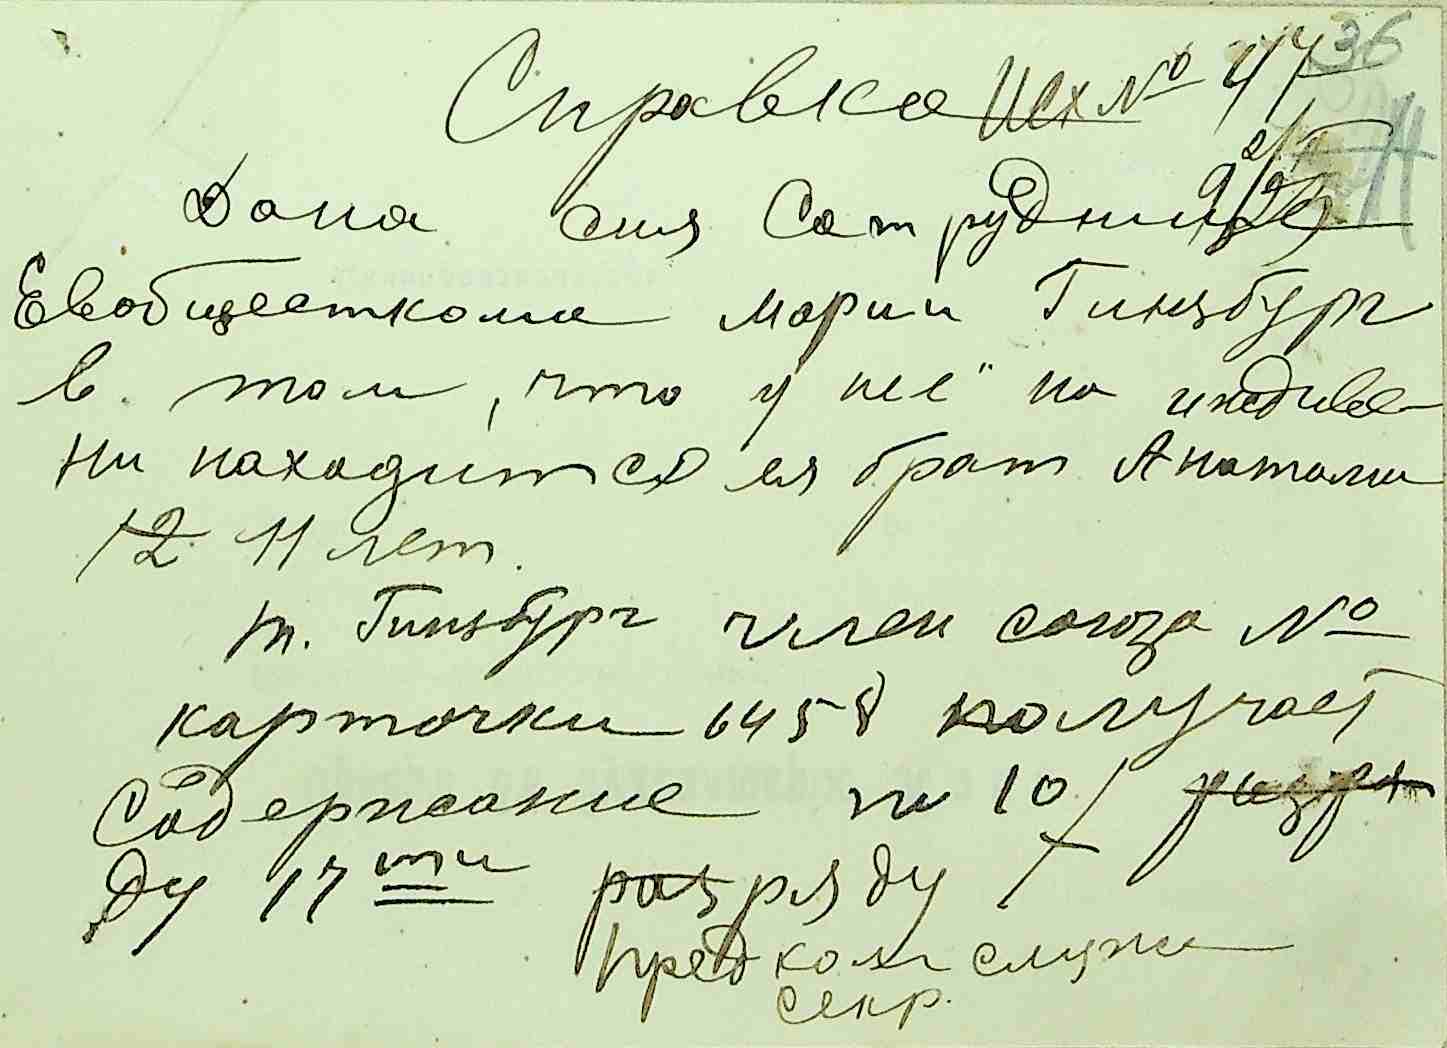 36
Справка Исх № 47
Дана сия Сатруднице
Евобщесткома Марии Гинзбург
в том, что у неё на иждиве-
ни находится ея брат Анатоли
12 11 лет.
т. Гинзбург член союза №
карточки 6458 получает
Содержание по 10/ разря
ду 17ти разряду
Пред колл служ
секр.